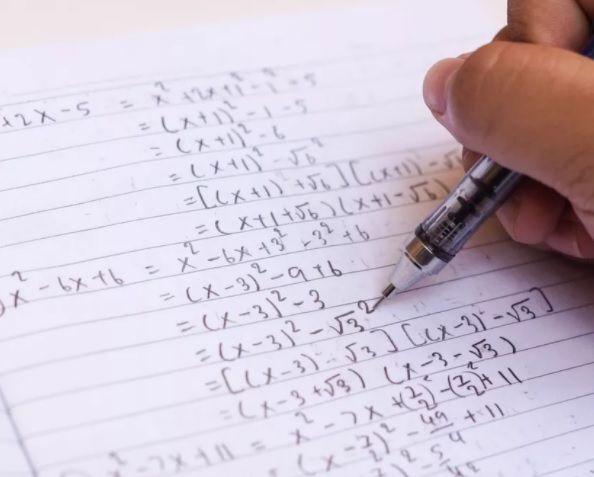 +2x-5 = x²+2x+1²-1²-5
= (x+1)²-1-5
= (x+1)²-6
= (x+1)²-√6²
= [(x+1)+√6][(x+1)-√6
= (x+1+√6)(x+1-√6)
x²-6x+6 = x²-6x+3²-3²+6
= (x-3)²-9+6
= (x-3)²-3
= (x-3)²-√3²
= [(x-3)-√3][(x-3)-√3]
= (x-3+√3)(x-3-√3)
x²-7x+11 = x²-7x+(7/2)²-(7/2)²+11
= (x-7/2)²-49/4+11